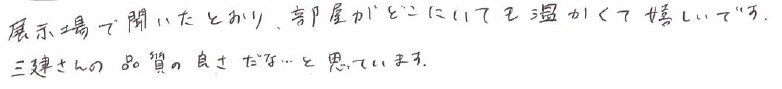 展示場で聞いたとおり、部屋がどこにいても温かくて嬉しいです.
三建さんの品質の良さだな…と思っています.